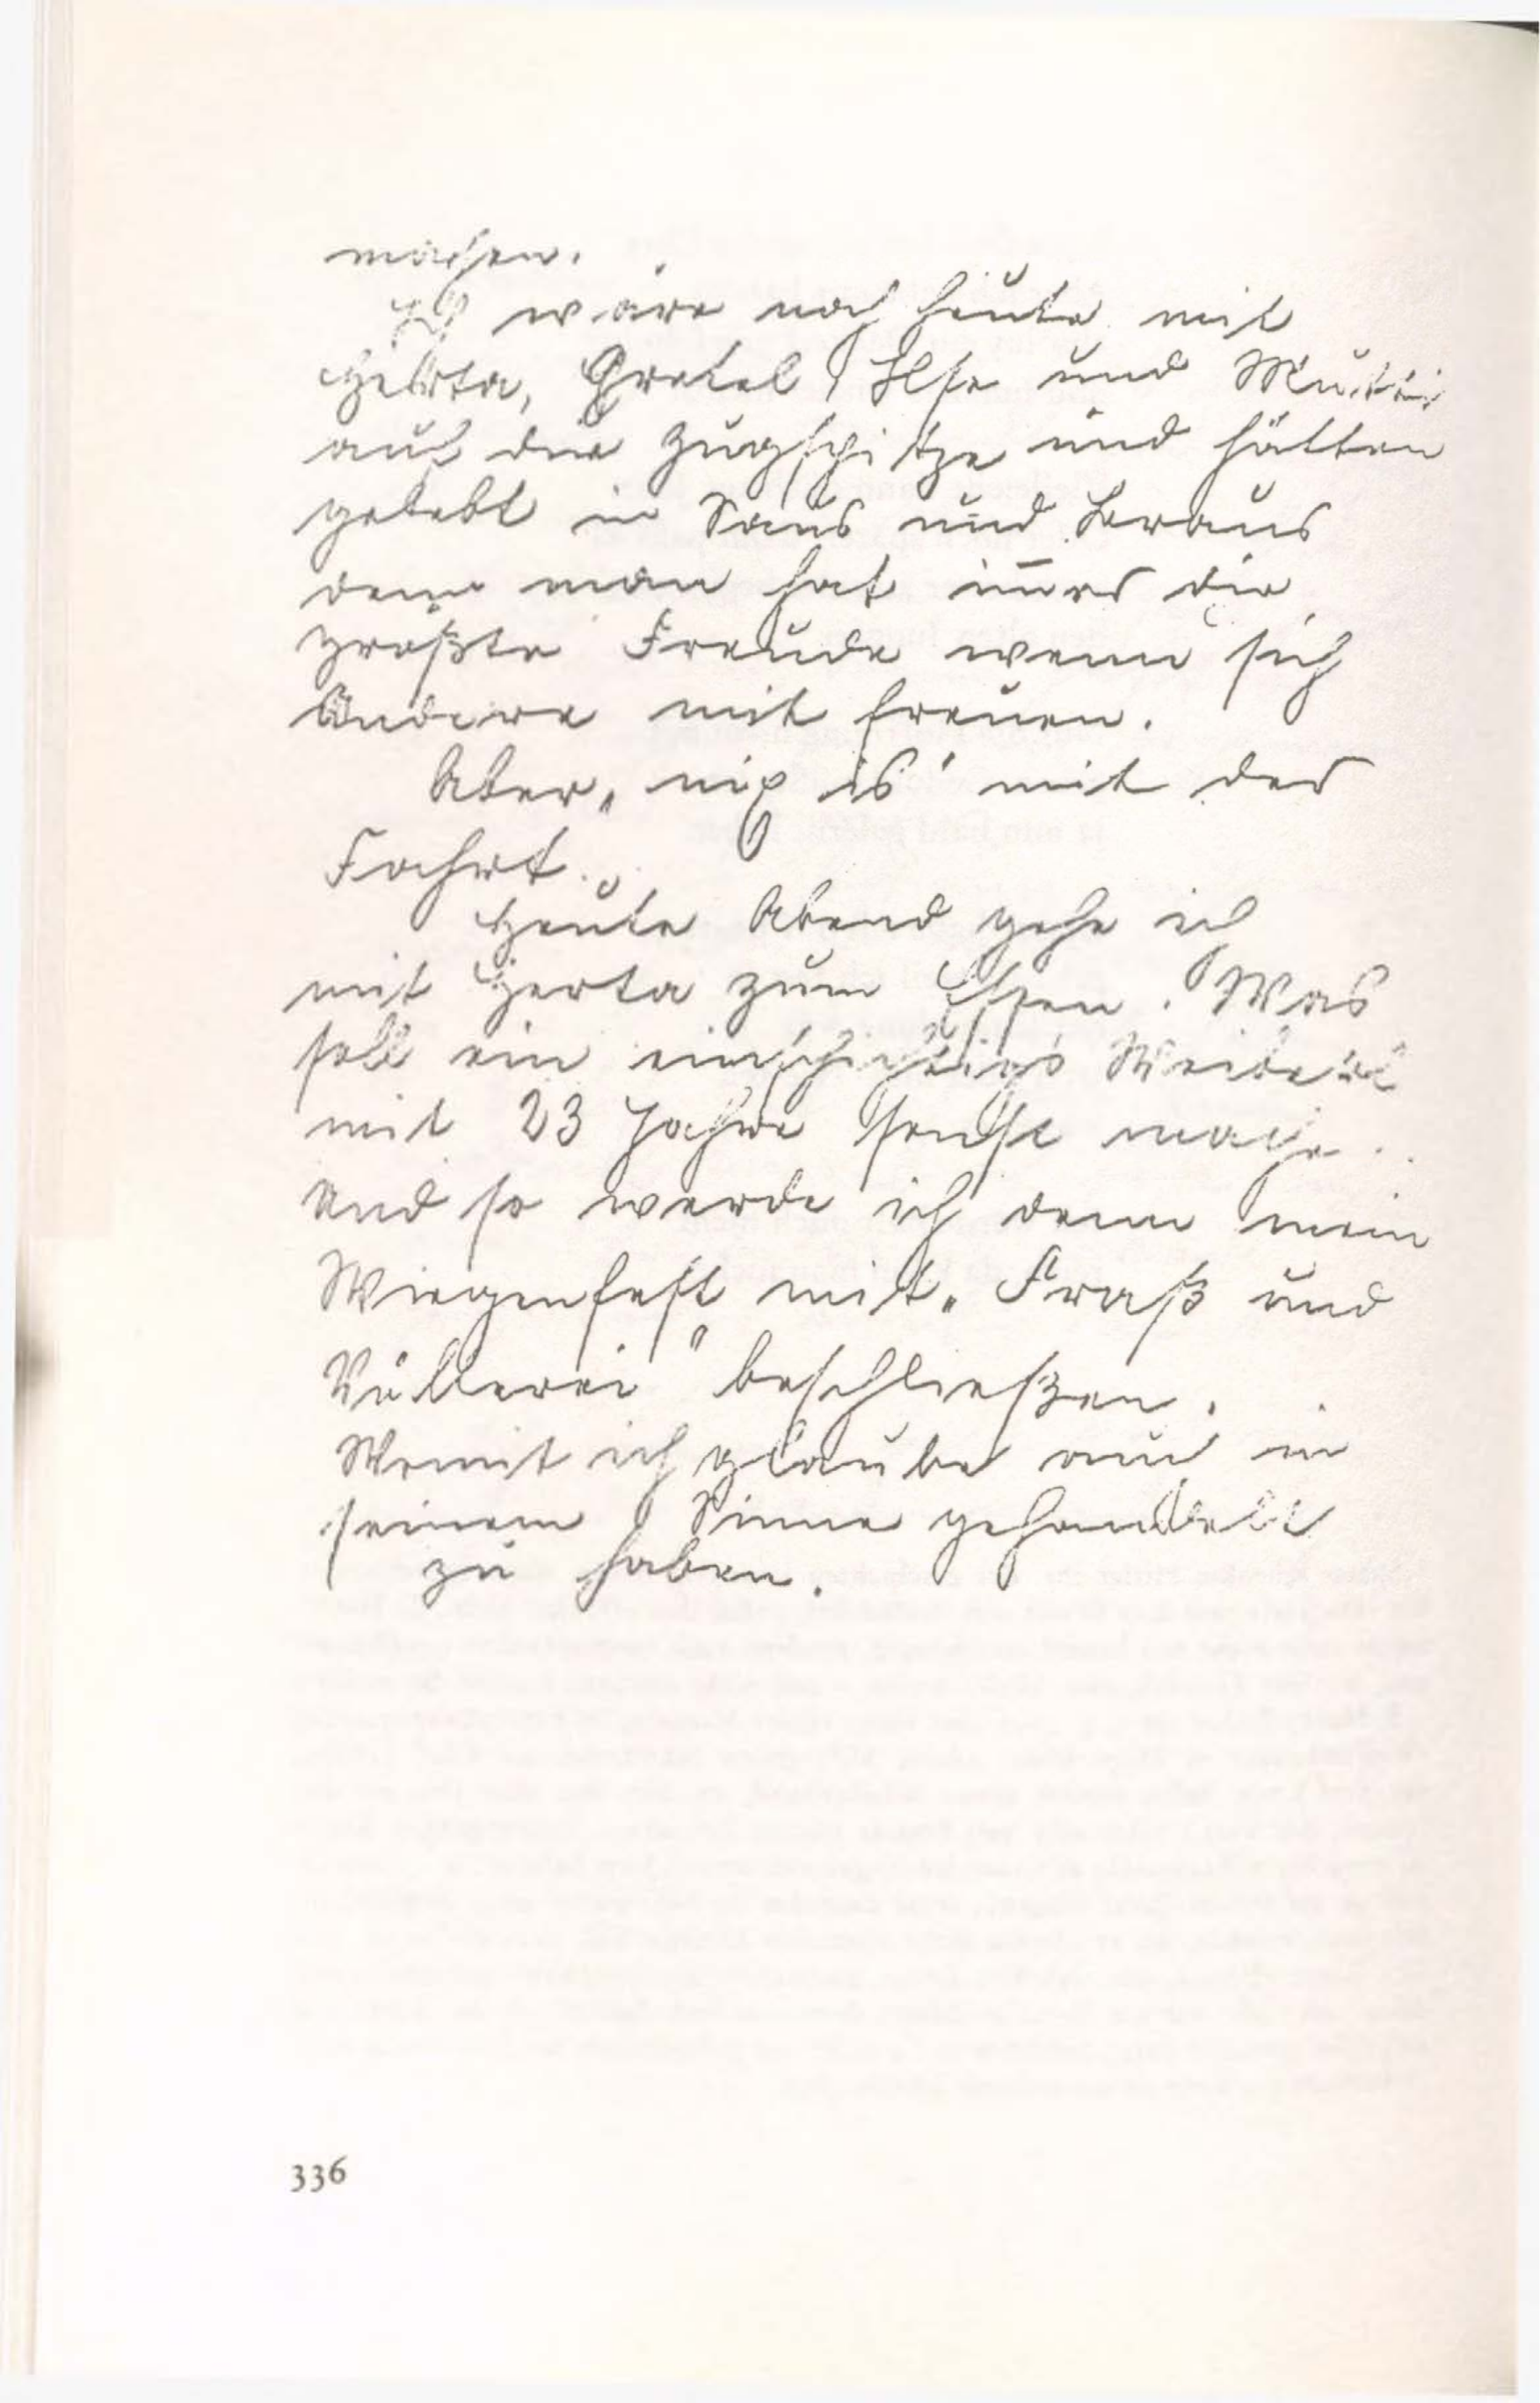 machen.
Ich wäre noch heute mit
Herta, Gretel, Ilse und Mutti
auf die Zugspitze und hätten
gelebt in Saus und Braus
denn man hat im̄er die
größte Freude wenn sich
Andere mit freuen.
Aber „nix is" mit der
Fahrt.
Heute Abend gehe ich
mit Herta zum Essen. Was
soll ein einschichtig's Weiberl
mit 23 Jahre sonst mache..
Und so werde ich denn mein
Wiegenfest mit „Fraß und
Völlerei" beschließen.
Womit ich glaube auch in
seinem Sinne gehandelt
zu haben.
336